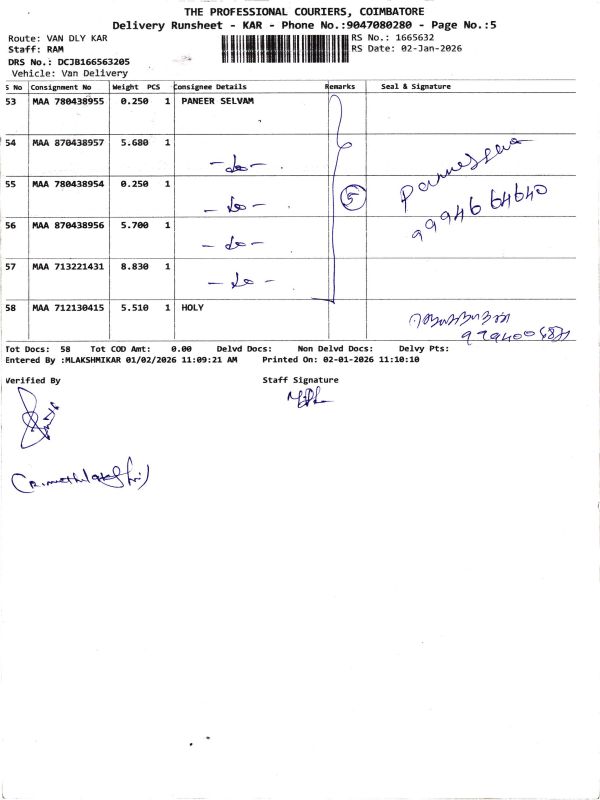 THE PROFESSIONAL COURIERS, COIMBATORE
Delivery Runsheet - KAR - Phone No.:9047080280 - Page No.:5
Route: VAN DLY KAR
RS No.: 1665632
Staff: RAM
RS Date: 02-Jan-2026
DRS No.: DCJB166563205
Vehicle: Van Delivery
S No Consignment No Weight PCS Consignee Details Remarks Seal & Signature
53 MAA 780438955 0.250 1 PANEER SELVAM
54 MAA 870438957 5.680 1 -do-
55 MAA 780438954 0.250 1 -do- 5
9994664640
56 MAA 870438956 5.700 1 -do-
57 MAA 713221431 8.830 1 -do-
58 MAA 712130415 5.510 1 HOLY
Tot Docs: 58 Tot COD Amt: 0.00 Delvd Docs: Non Delvd Docs: Delvy Pts:
Entered By :MLAKSHMIKAR 01/02/2026 11:09:21 AM Printed On: 02-01-2026 11:10:10
Verified By Staff Signature